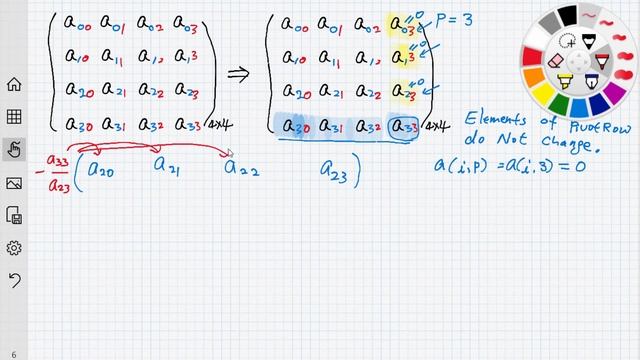 a00 a01 a02 a03
a10 a11 a12 a13
a20 a21 a22 a23
a30 a31 a32 a33 4x4
⇒
a00 a01 a02 a03 =0 P = 3
a10 a11 a12 a13 =0
a20 a21 a22 a23 =0
a30 a31 a32 a33 4x4
Elements of PivotRow
do Not change.
a(i,P) = a(i,3) = 0
- a33/a23 ( a20 a21 a22 a23 )
6